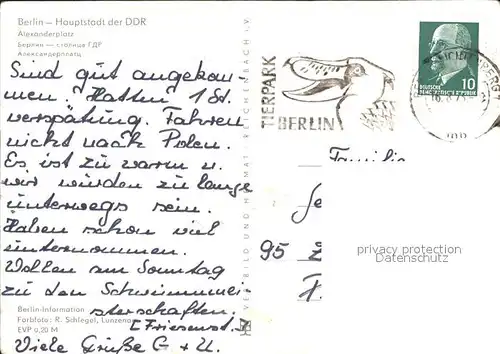 Berlin — Hauptstadt der DDR
Alexanderplatz
Берлин — столица ГДР
Александерплатц
Sind gut angekom-
men. Hatten 1 St.
verspätung. Fahren
nicht nach Polen.
Es ist zu warm u.
wir würden zu lange
unterwegs sein.
Haben schon viel
unternommen.
Wollen am Sonntag
zu den Schwimmmei-
sterschaften.
[Friesenst.]
Viele Grüße G + U.
Berlin-Information
Farbfoto: R. Schlegel, Lunzenau
EVP 0,20 M
VERLAG BILD UND HEIMAT REICHENBACH i. V.
TIERPARK
BERLIN
10
DEUTSCHE
DEMOKRATISCHE REPUBLIK
Familie
95
privacy protection
Datenschutz